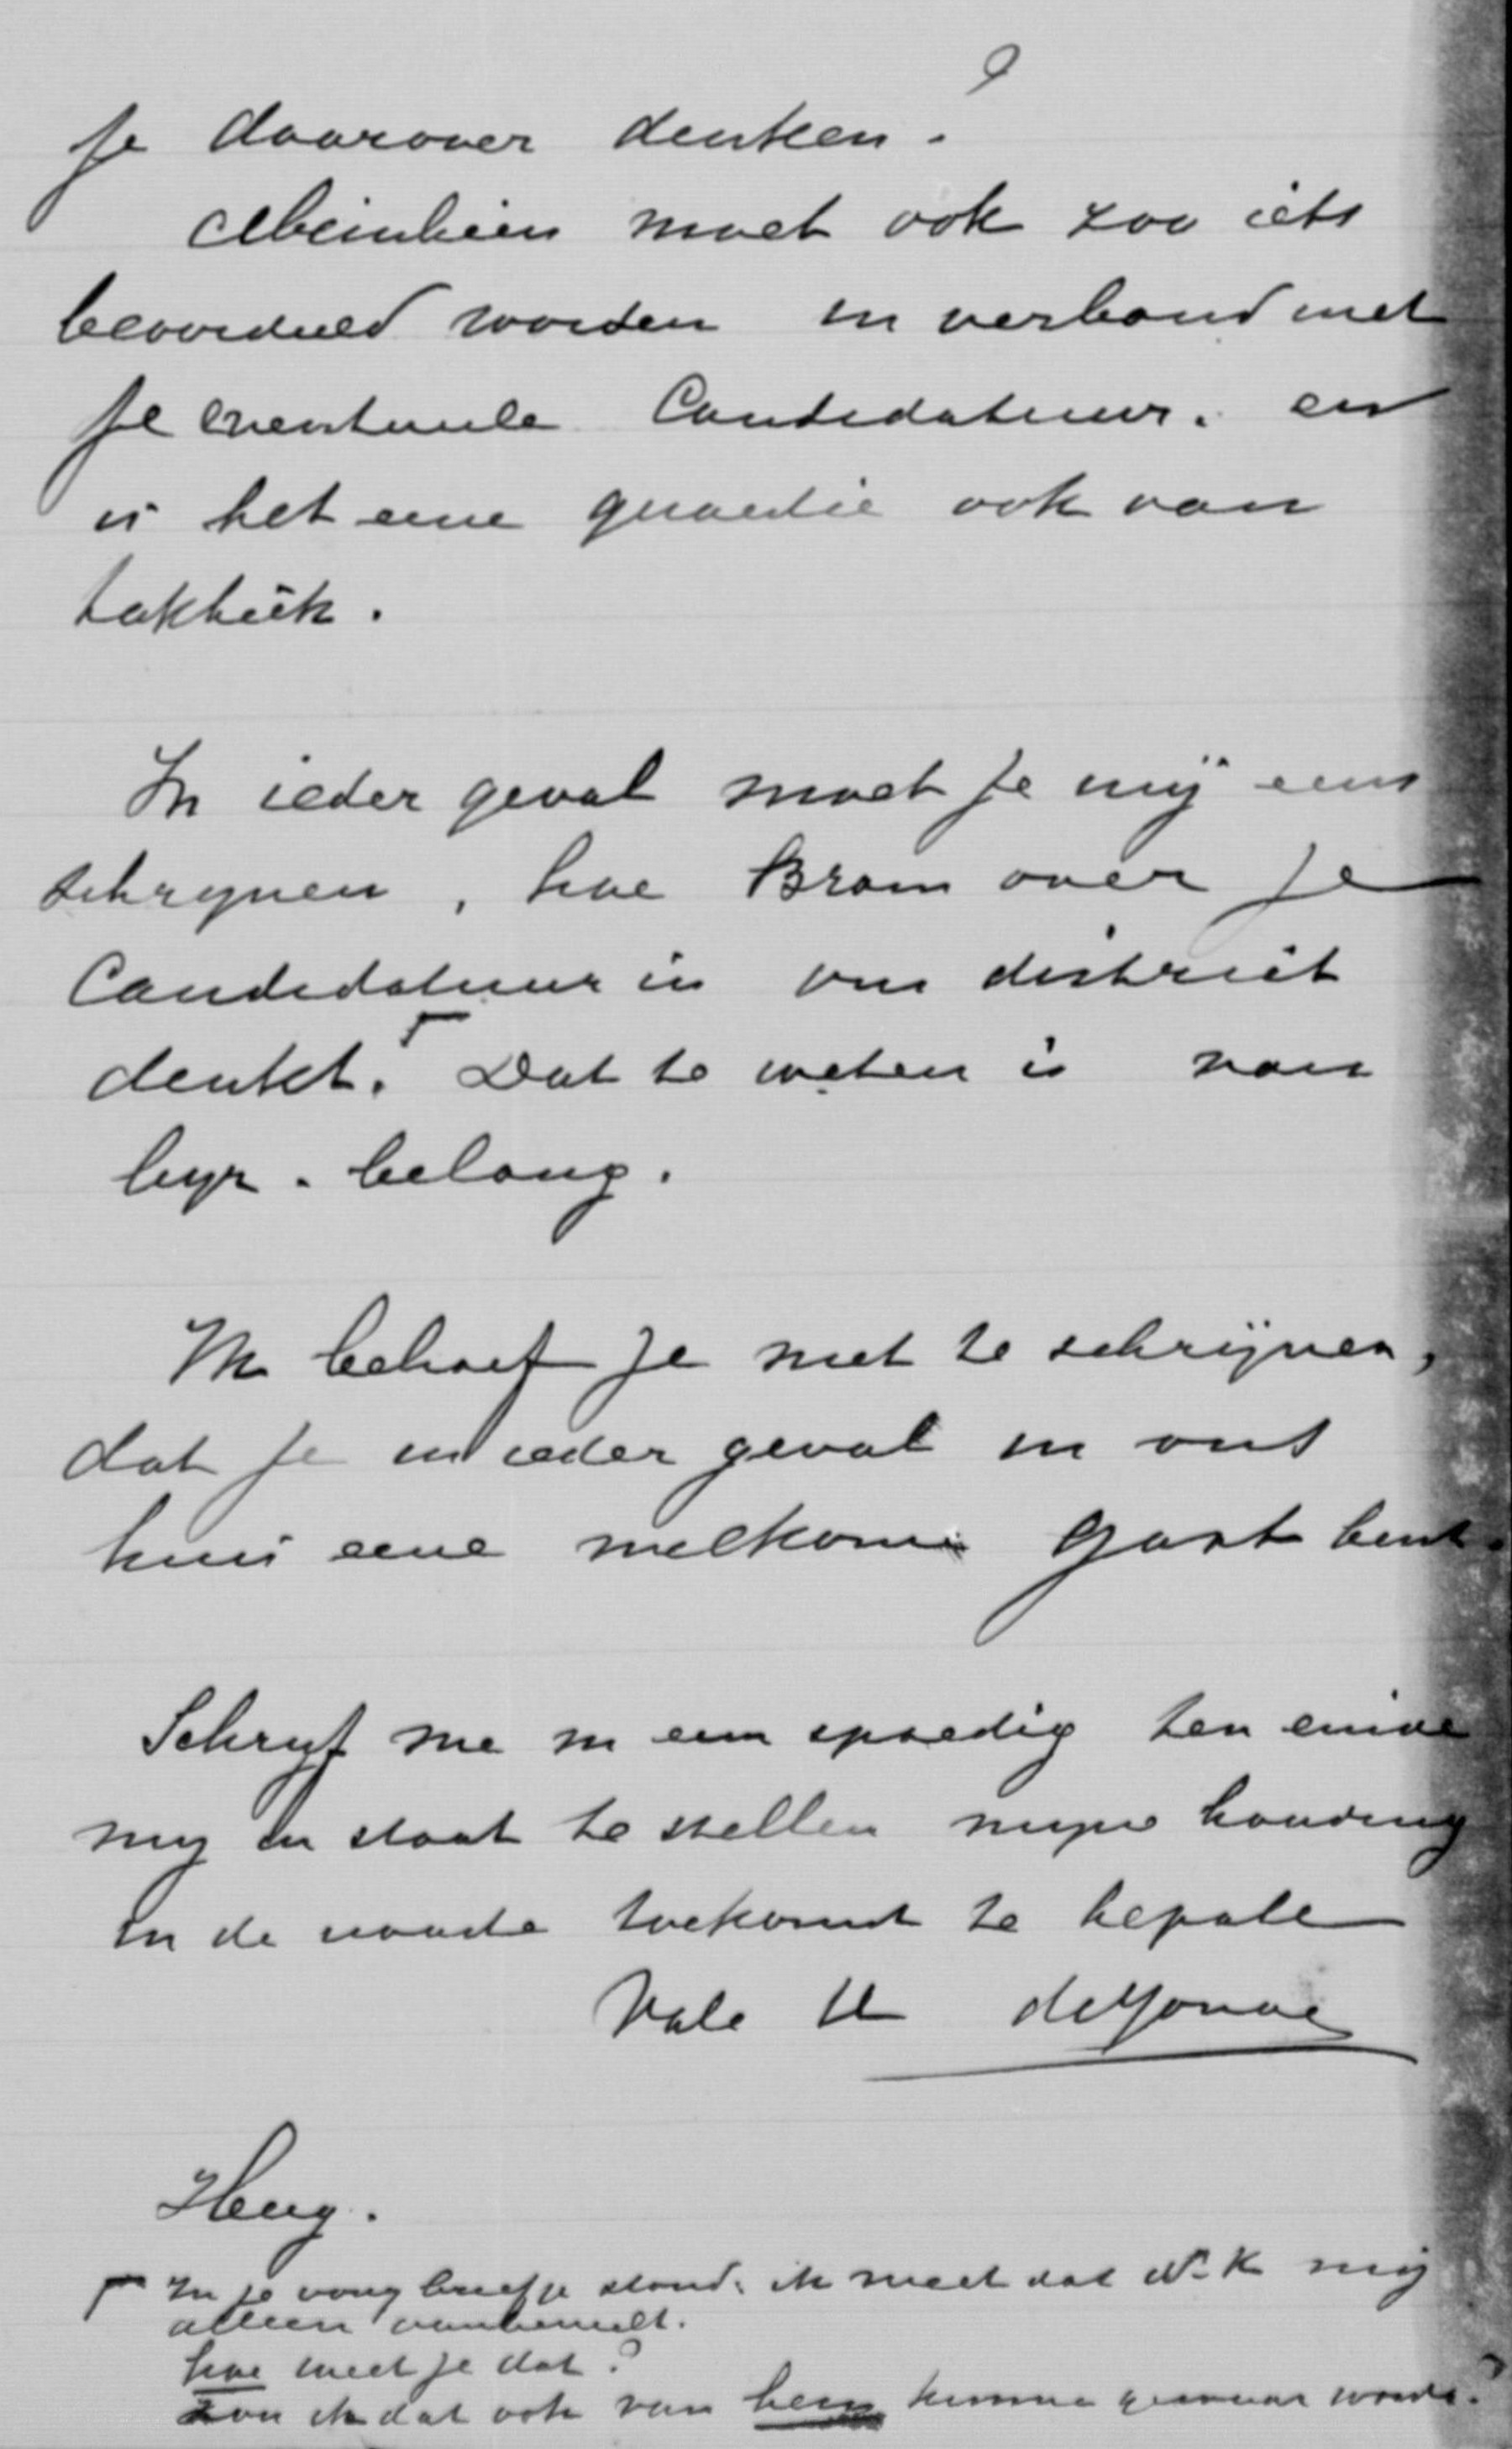 je daarover denken?
Meinheim moet ook zoo iets
beoordeeld worden in verband met
je eventueele Candidatuur. en
is het eene quaestie ook van
taktiek.
In ieder geval moet je mij eens
schryven, hoe Bram over je
Candidatuur in ons district
denkt.⌈ Dat te weten is van
byz. belang.
Ik behoef je niet te schrijven,
dat je in ieder geval in ons
huis eene welkome gast bent.
Schryf me nu eens spoedig ten einde
my in staat te stellen myne houding
in de naaste toekomst te bepalen
Vale tt de Jonge
Heng.
⌈ In je vorig briefje stond: ik weet dat N. K mij
alleen aanbeveelt.
hoe weet je dat?
zou ik dat ook van hem kunnen gewaar worden?